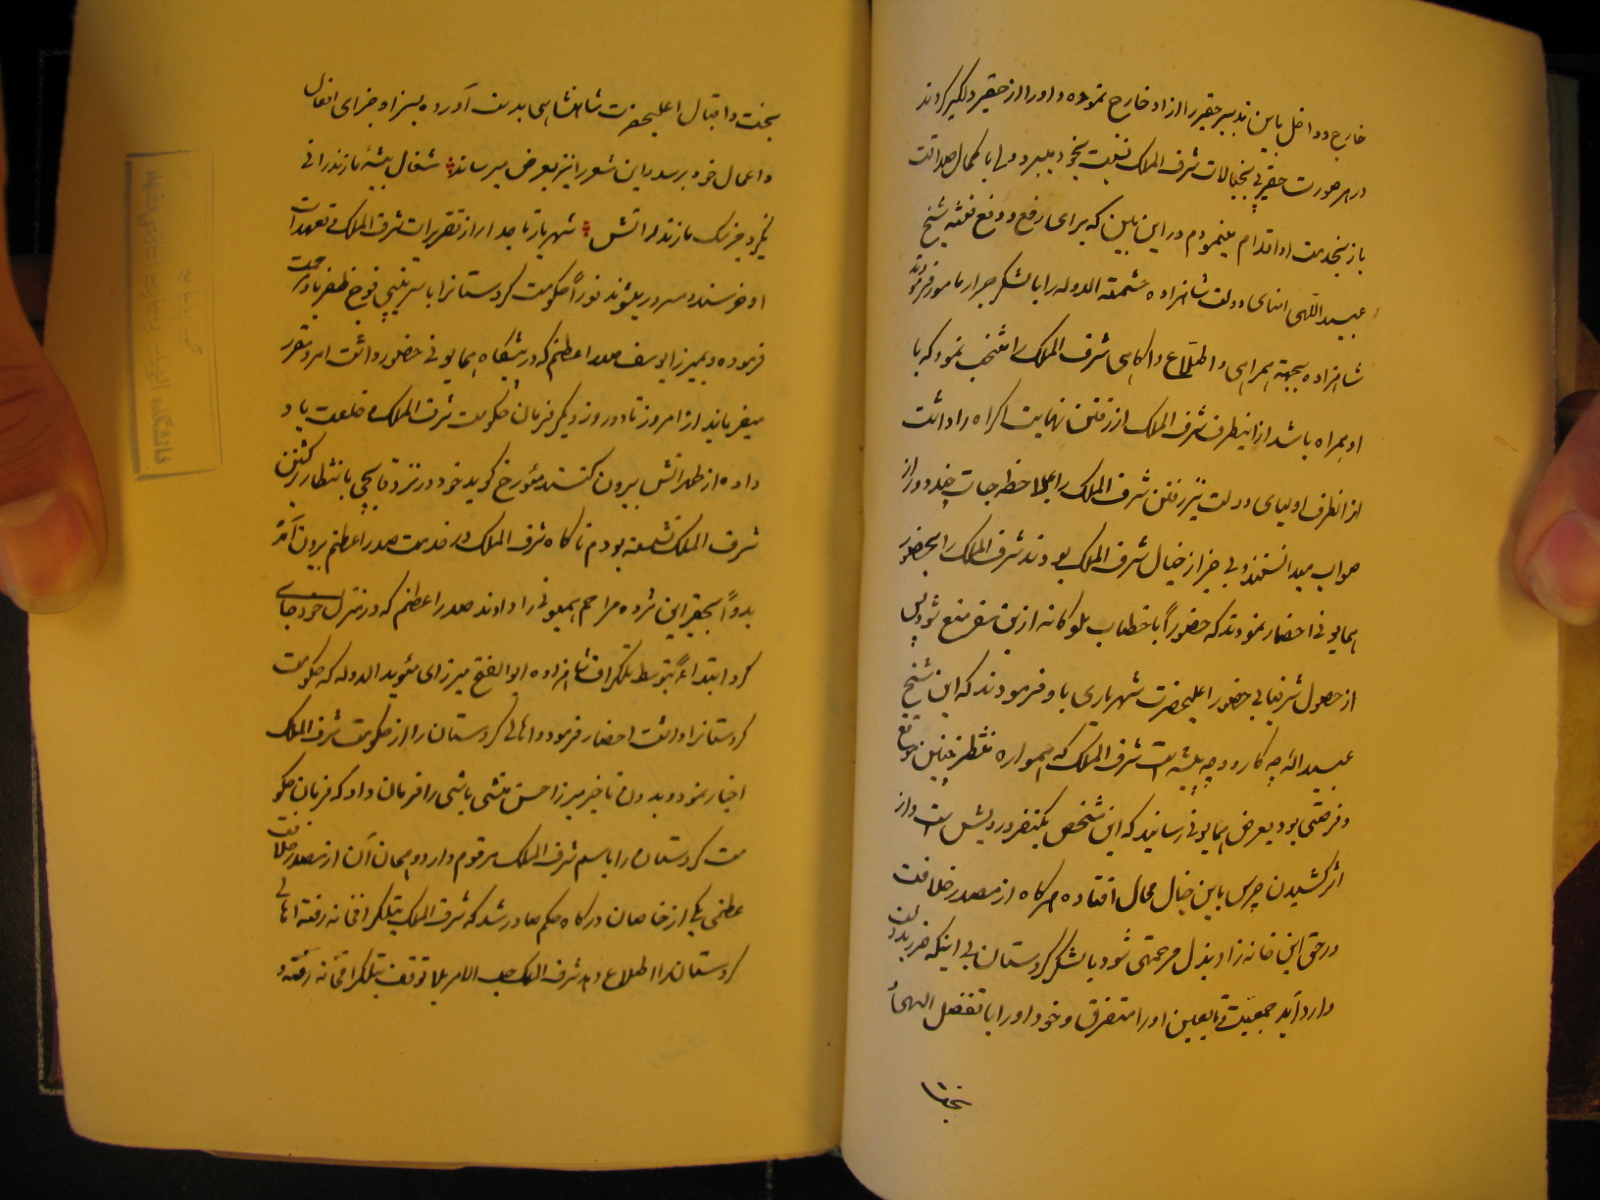 خارج و داخل باین تدبیر حقیر را از او خارج نموده و او را از حقیر دلگیر کردند
در هر صورت حقیر پی بخیالات شرف الملک نسبت بخود میبردم ولی با کمال صداقت
باز بخدمت او اقدام مینمودم در این بین که برای رفع و دفع فتنه شیخ
عبید اللهی امنای دولت شاهزاده حشمة الدوله را با لشکر جرار مامور فرمودند
شاهزاده بجهة همراهی و اطلاع و اکاهی شرف الملک را منتخب نمود که با
او همراه باشد از اینطرف شرف الملک از رفتن نهایت اکراه را داشت
از انطرف اولیای دولت نیز رفتن شرف الملک را بملاحظه جات چند دور از
صواب میدانستند و بی خبر از خیال شرف الملک بودند شرف الملک را بحضور
همایونی احضار نمودند که حضوراً با خطاب ملوکانه ازین سفر منع شود پس
از حصول شرفیابی حضور اعلیحضرت شهریاری باو فرمودند که این شیخ
عبید الله چه کاره و چه پیشه است شرف الملک که همواره منتظر چنین موقع
و فرصتی بود بعرض همایونی رسانید که این شخص یکنفر درویش است و از
اثر کشیدن چرس باین خیال محال افتاده هرکاه از مصدر خلافت
در حق این خانه زاد بذل مرحمتی شود با لشکر کردستان بی اینکه ضرر بدولت
وارد آید جمعیت و تابعین او را متفرق و خود او را با تفضل الهی
بخت
بخت و اقبال اعلیحضرت شاهنشاهی بدست آورده بسزا و جزای افعال
و اعمال خود برسد این شعر را نیز بعرض میرساند شغال بیشهٔ مازندرانی
نگیرد جز سک مازندرانش شهریار تاجدار از تقریرات شرف الملک و تعهدات
او خرسند و مسرور میشوند فوراً حکومت کردستانرا با سرتیپی فوج ظفر باو مرحمت
فرموده و بمیرزا یوسف صدر اعظم که در پیشگاه همایونی حضور داشت امر و مقرر
میفرمایند از امروز تا دو روز دیگر فرمان حکومت شرف الملک و خلعت باو
داده از طهرانش بیرون کنند مؤرخ کوید خود در نزد قاپچی بانتظار برکشتن
شرف الملک نشسته بودم ناکاه شرف الملک در خدمت صدر اعظم بیرون آمد
بدواً بحقیر این مژده مراحم همیونی را دادند صدر اعظم که در منزل خود جای
کرد ابتداءً بتوسط تلگراف شاهزاده ابوالفتح میرزای مؤید الدوله که حکومت
کردستانرا داشت احضار فرمود و اهالی کردستان را از حکومت شرف الملک
اخبار نمود و بدون تاخیر میرزا حسن منشی باشی را فرمان داد که فرمان حکو
مت کردستان را باسم شرف الملک مرقوم دارد و همان آن از مصدر جلالت
عظمی یکی از خاصان درکاه حکم صادر شد که شرف الملک بتلگرافخانه رفته اهالی
کردستان را اطلاع دهد شرف الملک حسب الامر بلا توقف بتلگرافخانه رفته و